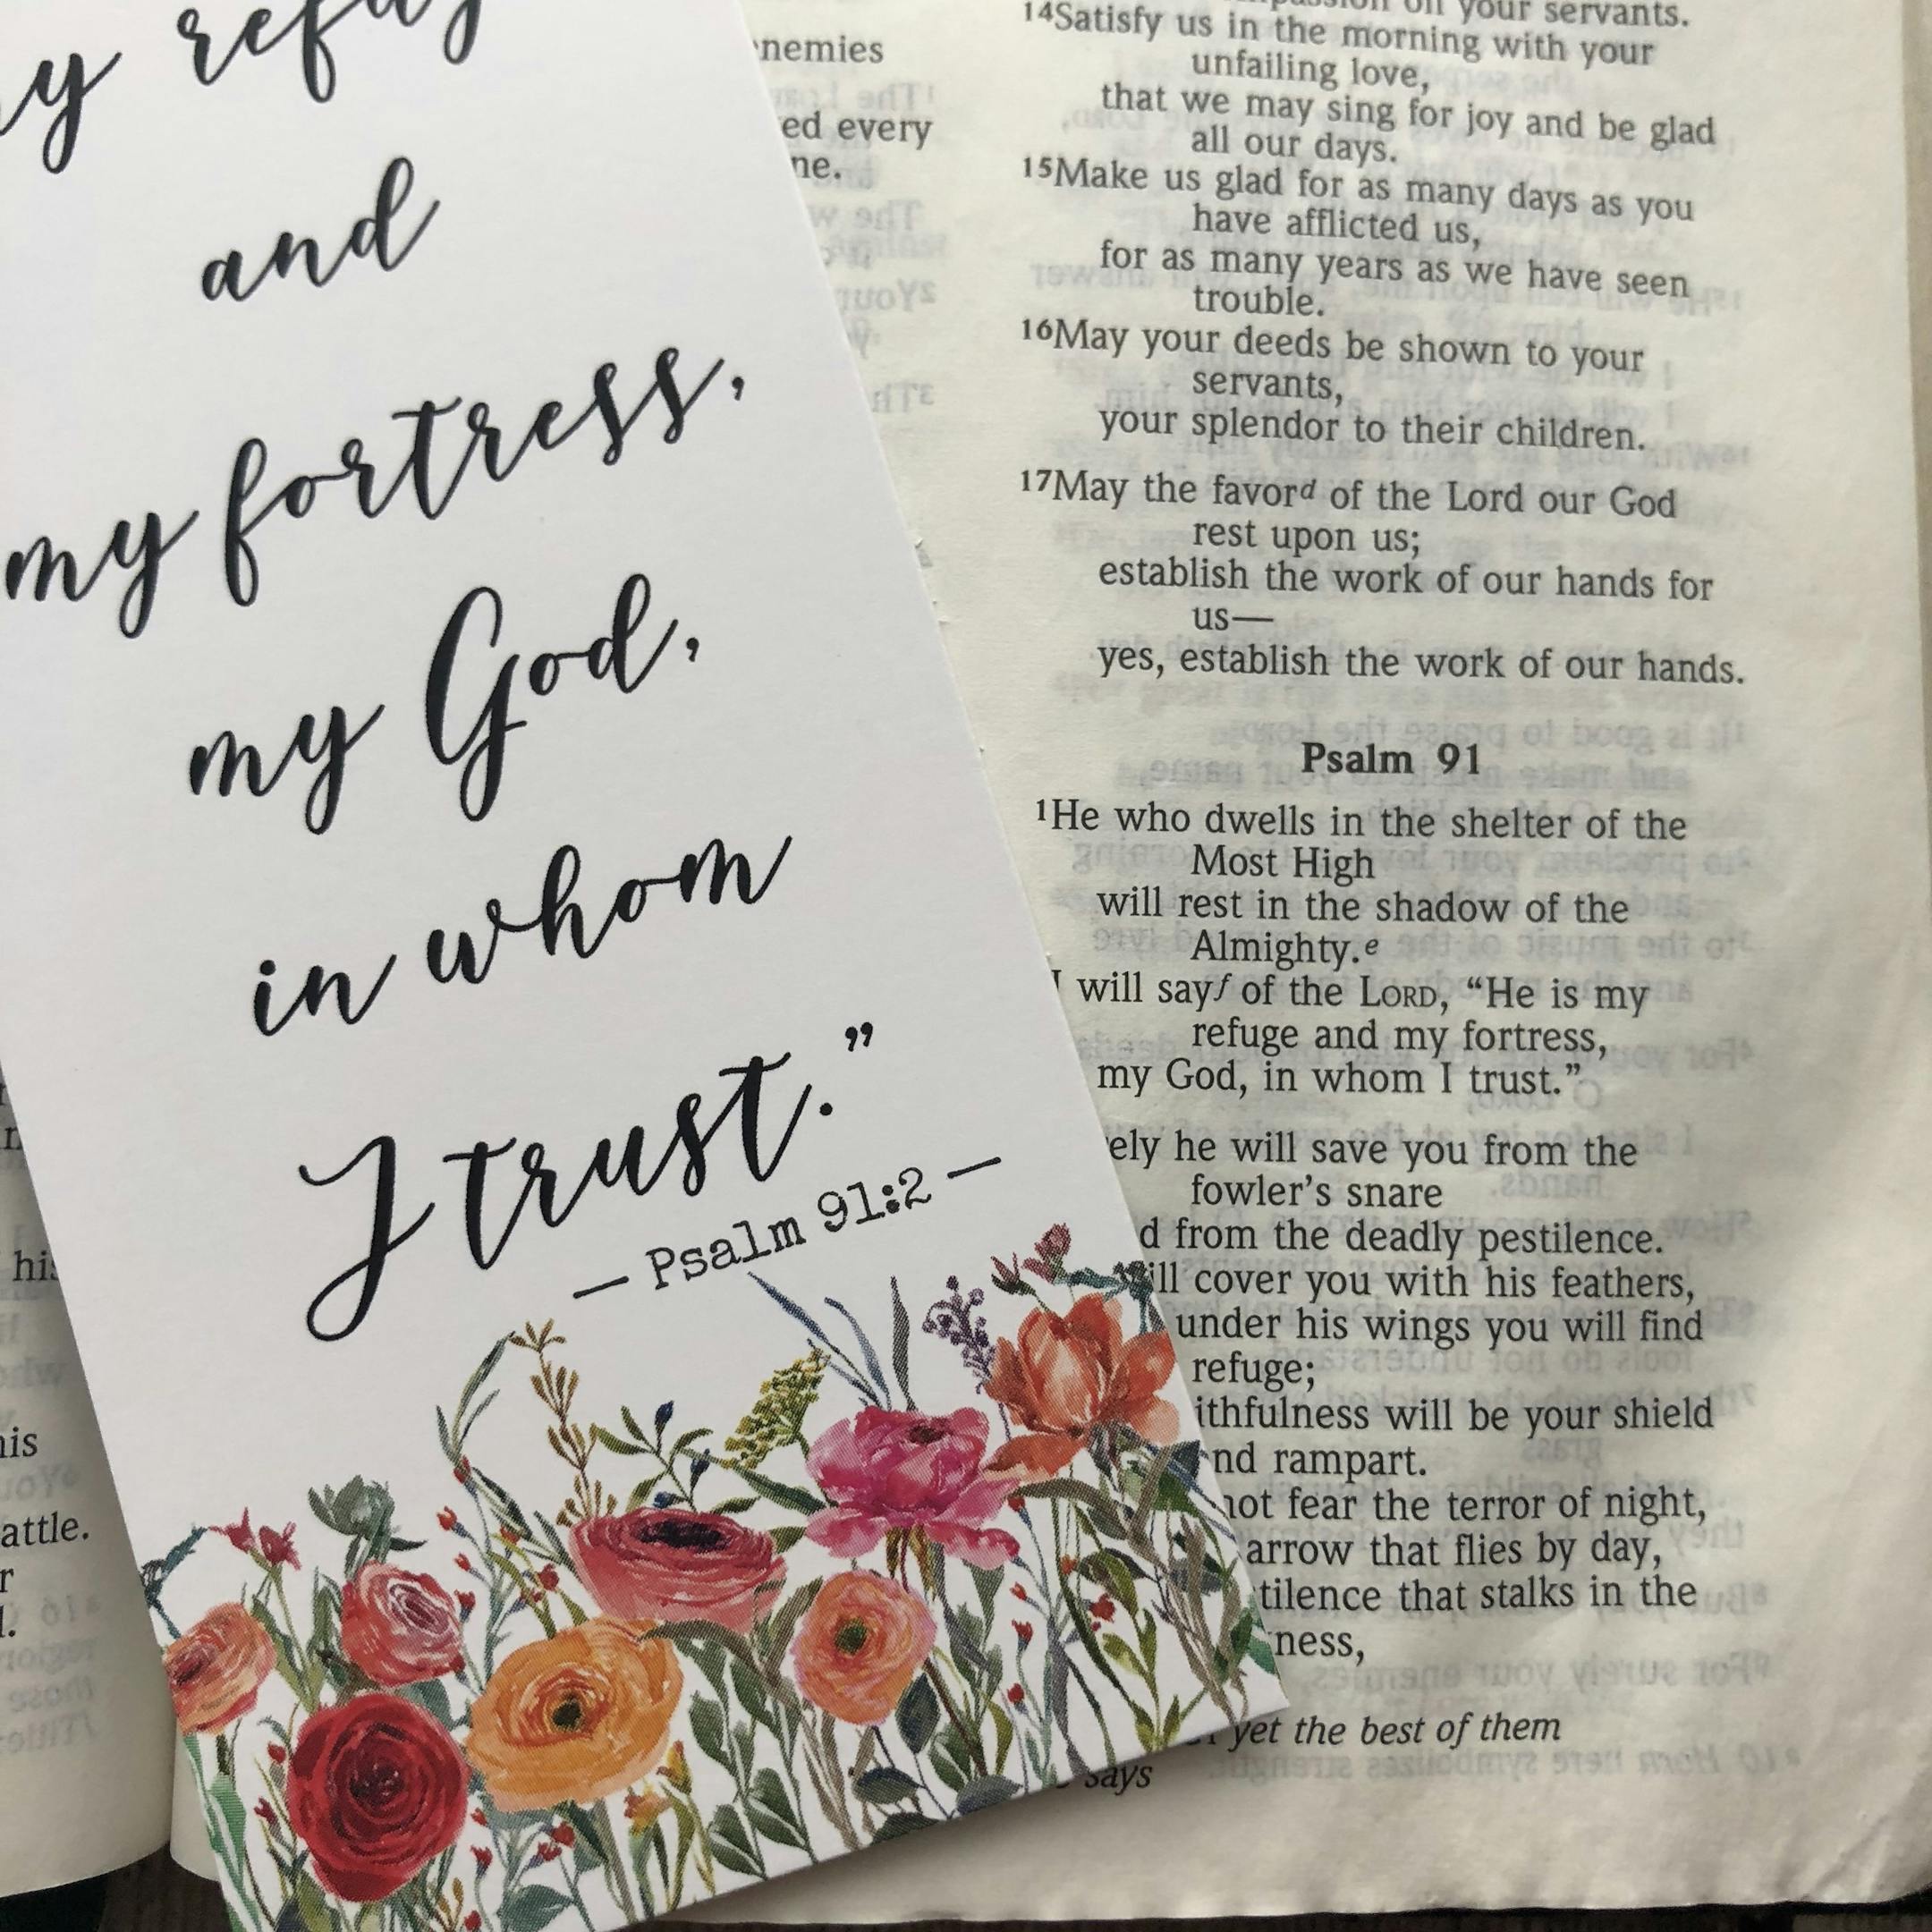 my refuge
and
my fortress,
my God,
in whom
I trust.”
— Psalm 91:2 —
nemies
ed every
ne.
his
his
attle.
on your servants.
14Satisfy us in the morning with your
unfailing love,
that we may sing for joy and be glad
all our days.
15Make us glad for as many days as you
have afflicted us,
for as many years as we have seen
trouble.
16May your deeds be shown to your
servants,
your splendor to their children.
17May the favord of the Lord our God
rest upon us;
establish the work of our hands for
us—
yes, establish the work of our hands.
Psalm 91
1He who dwells in the shelter of the
Most High
will rest in the shadow of the
Almighty.e
I will sayf of the LORD, “He is my
refuge and my fortress,
my God, in whom I trust.”
ely he will save you from the
fowler’s snare
d from the deadly pestilence.
ill cover you with his feathers,
under his wings you will find
refuge;
ithfulness will be your shield
nd rampart.
not fear the terror of night,
arrow that flies by day,
tilence that stalks in the
ness,
yet the best of them
says